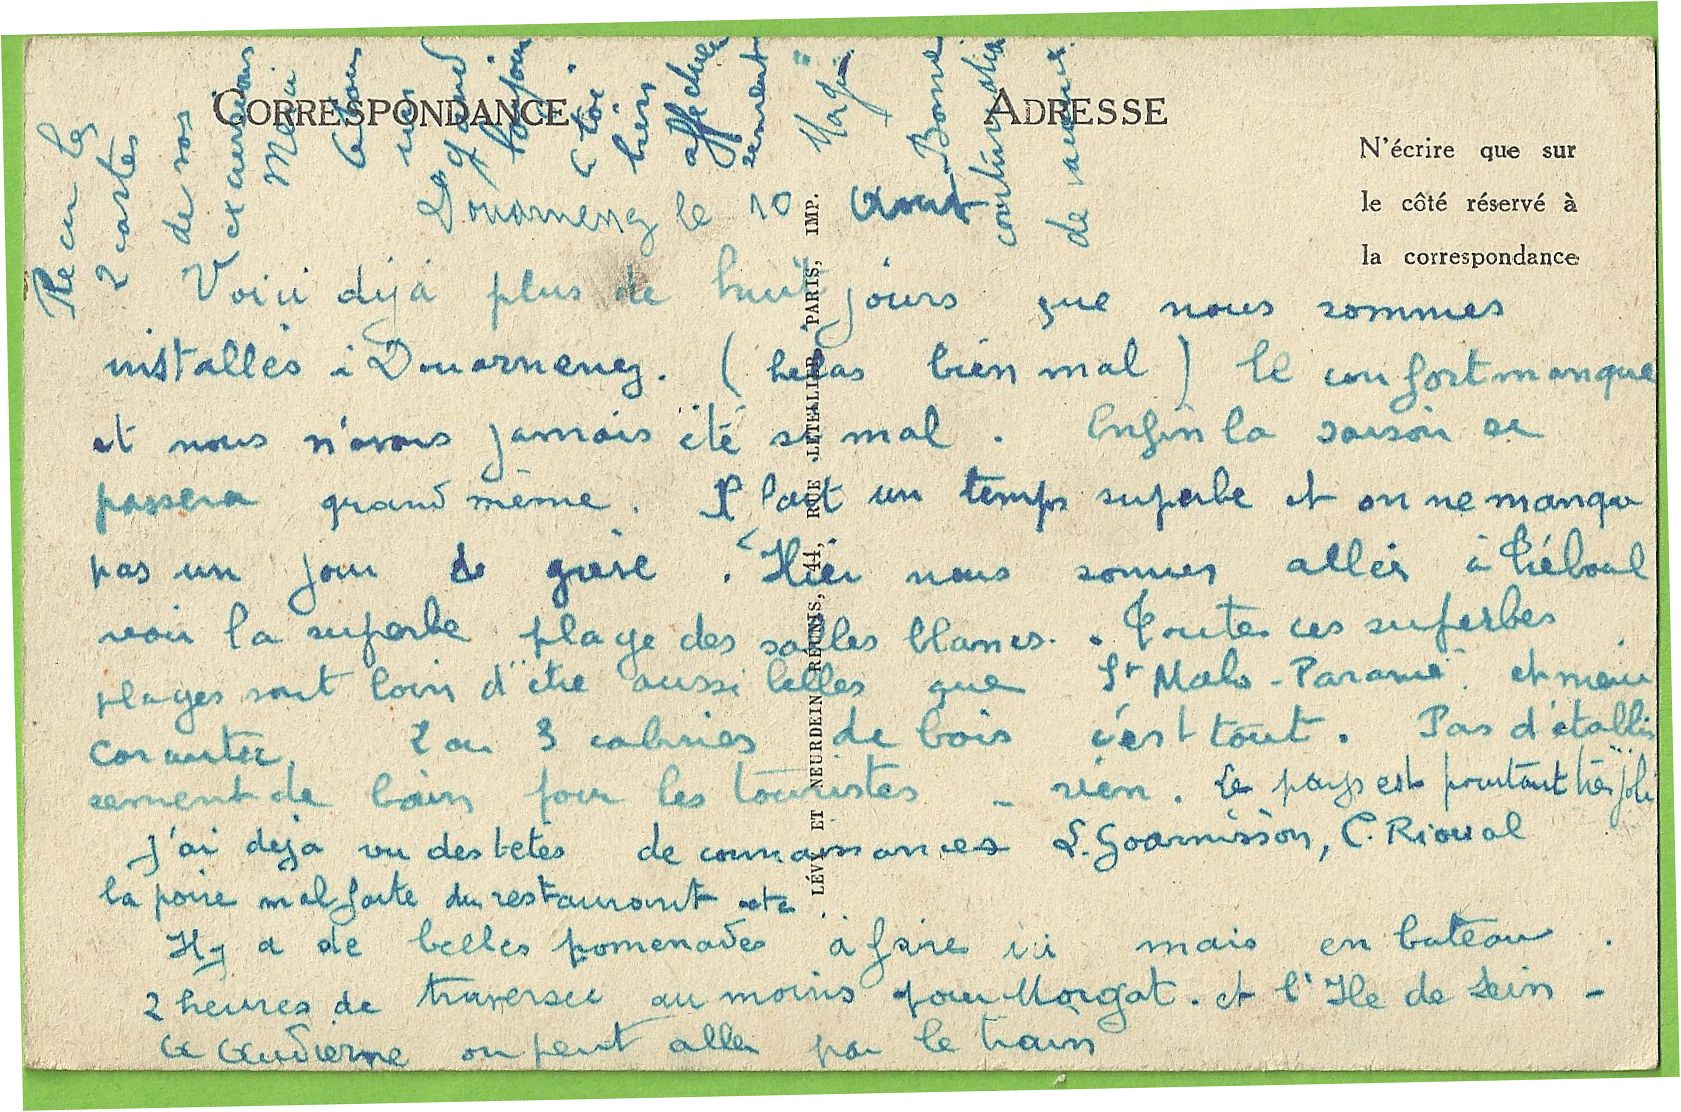 CORRESPONDANCE
ADRESSE
N'écrire que sur
le côté réservé à
la correspondance
Douarnenez le 10 Aout
Voici dejà plus de huit jours que nous sommes
installés à Douarnenez. (helas bien mal) le confort manque
et nous n'avons jamais été si mal. Enfin la saison se
passera grand même. Il fait un temps superbe et on ne manque
pas un jour de grève. Hier nous sommes allés à Tréboul
voir la superbe plage des sables blancs. Toutes ces superbes
plages sont loin d'être aussi belles que St Malo-Paramé. et meme
Carantec. 2 ou 3 cabines de bois c'est tout. Pas d'établis
sement de bains pour les touristes - rien. Le pays est pourtant très joli
J'ai deja vu des tetes de connaissances L. Goarnisson, C. Rioual
la poire mal faite du restaurant etc.
Il y a de belles promenades à faire ici mais en bateau.
2 heures de traversée au moins pour Morgat. et l'Ile de Sein -
A Audierne on peut aller par le train
Recu les
2 cartes
de vos
et
Merci
bien
affectueu
sement
Bonne
continuation
de vacances.
LÉVY ET NEURDEIN RÉUNIS, 44, RUE LETELLIER, PARIS, IMP.